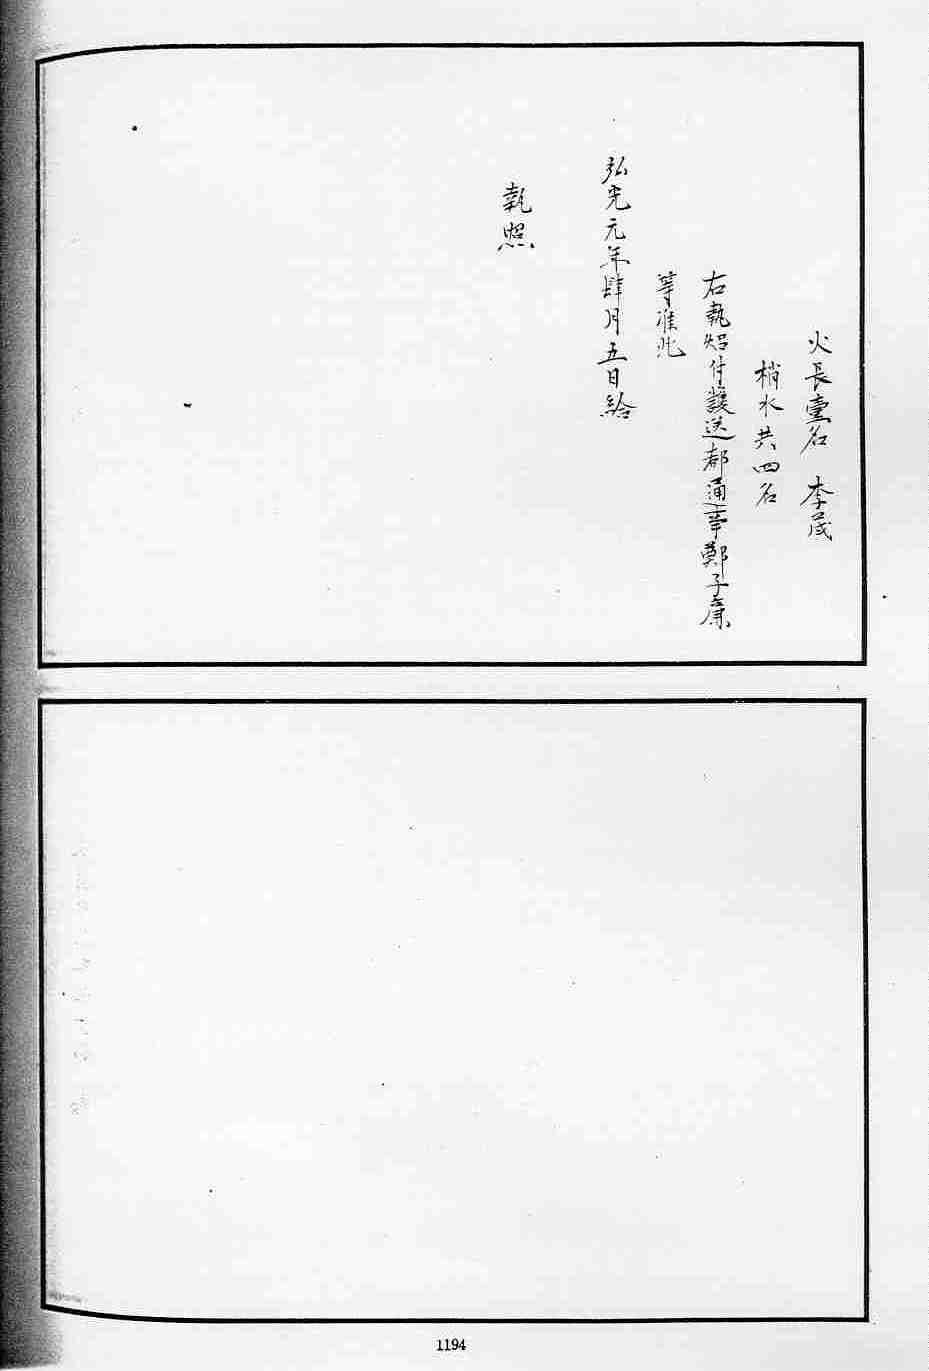 火長壹名　李茂
梢水共四名
右執照付護送都通事鄭子廉
等准此
弘光元年肆月五日給
執照
1194